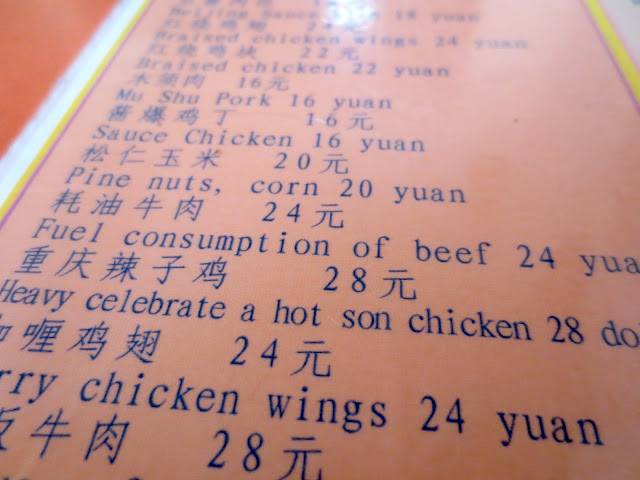 Beijing Sauce yuan
红烧鸡翅 24元
Braised chicken wings 24 yuan
红烧鸡块 22元
Braised chicken 22 yuan
木须肉 16元
Mu Shu Pork 16 yuan
酱爆鸡丁 16元
Sauce Chicken 16 yuan
松仁玉米 20元
Pine nuts, corn 20 yuan
耗油牛肉 24元
Fuel consumption of beef 24 yua
重庆辣子鸡 28元
Heavy celebrate a hot son chicken 28 do
喱鸡翅 24元
rry chicken wings 24 yuan
牛肉 28元